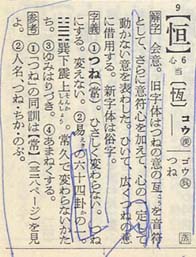 9
〔恒〕
心6
当
〔恆〕
コウ㊊ ゴウ㊋
つね
解字 会意。旧字体はつねの意の亙を音符
とし、さらに意符心を加えて、心の一定して
動かない意を表わした。ひいて、広くつねの意
に借用する。新字体は俗字。
字義 ①つね(常)㋐ひさしく変わらない。㋑つね
さだめ。変えない。②易の六十四卦の一。
巽下震上 常久で変わらないかた
③ゆみはりづき。④あまねくする。
参考 ①「つね」の同訓は【常】(三三八ページ)を見
よ。②人名、つね・ちか・のぶ。